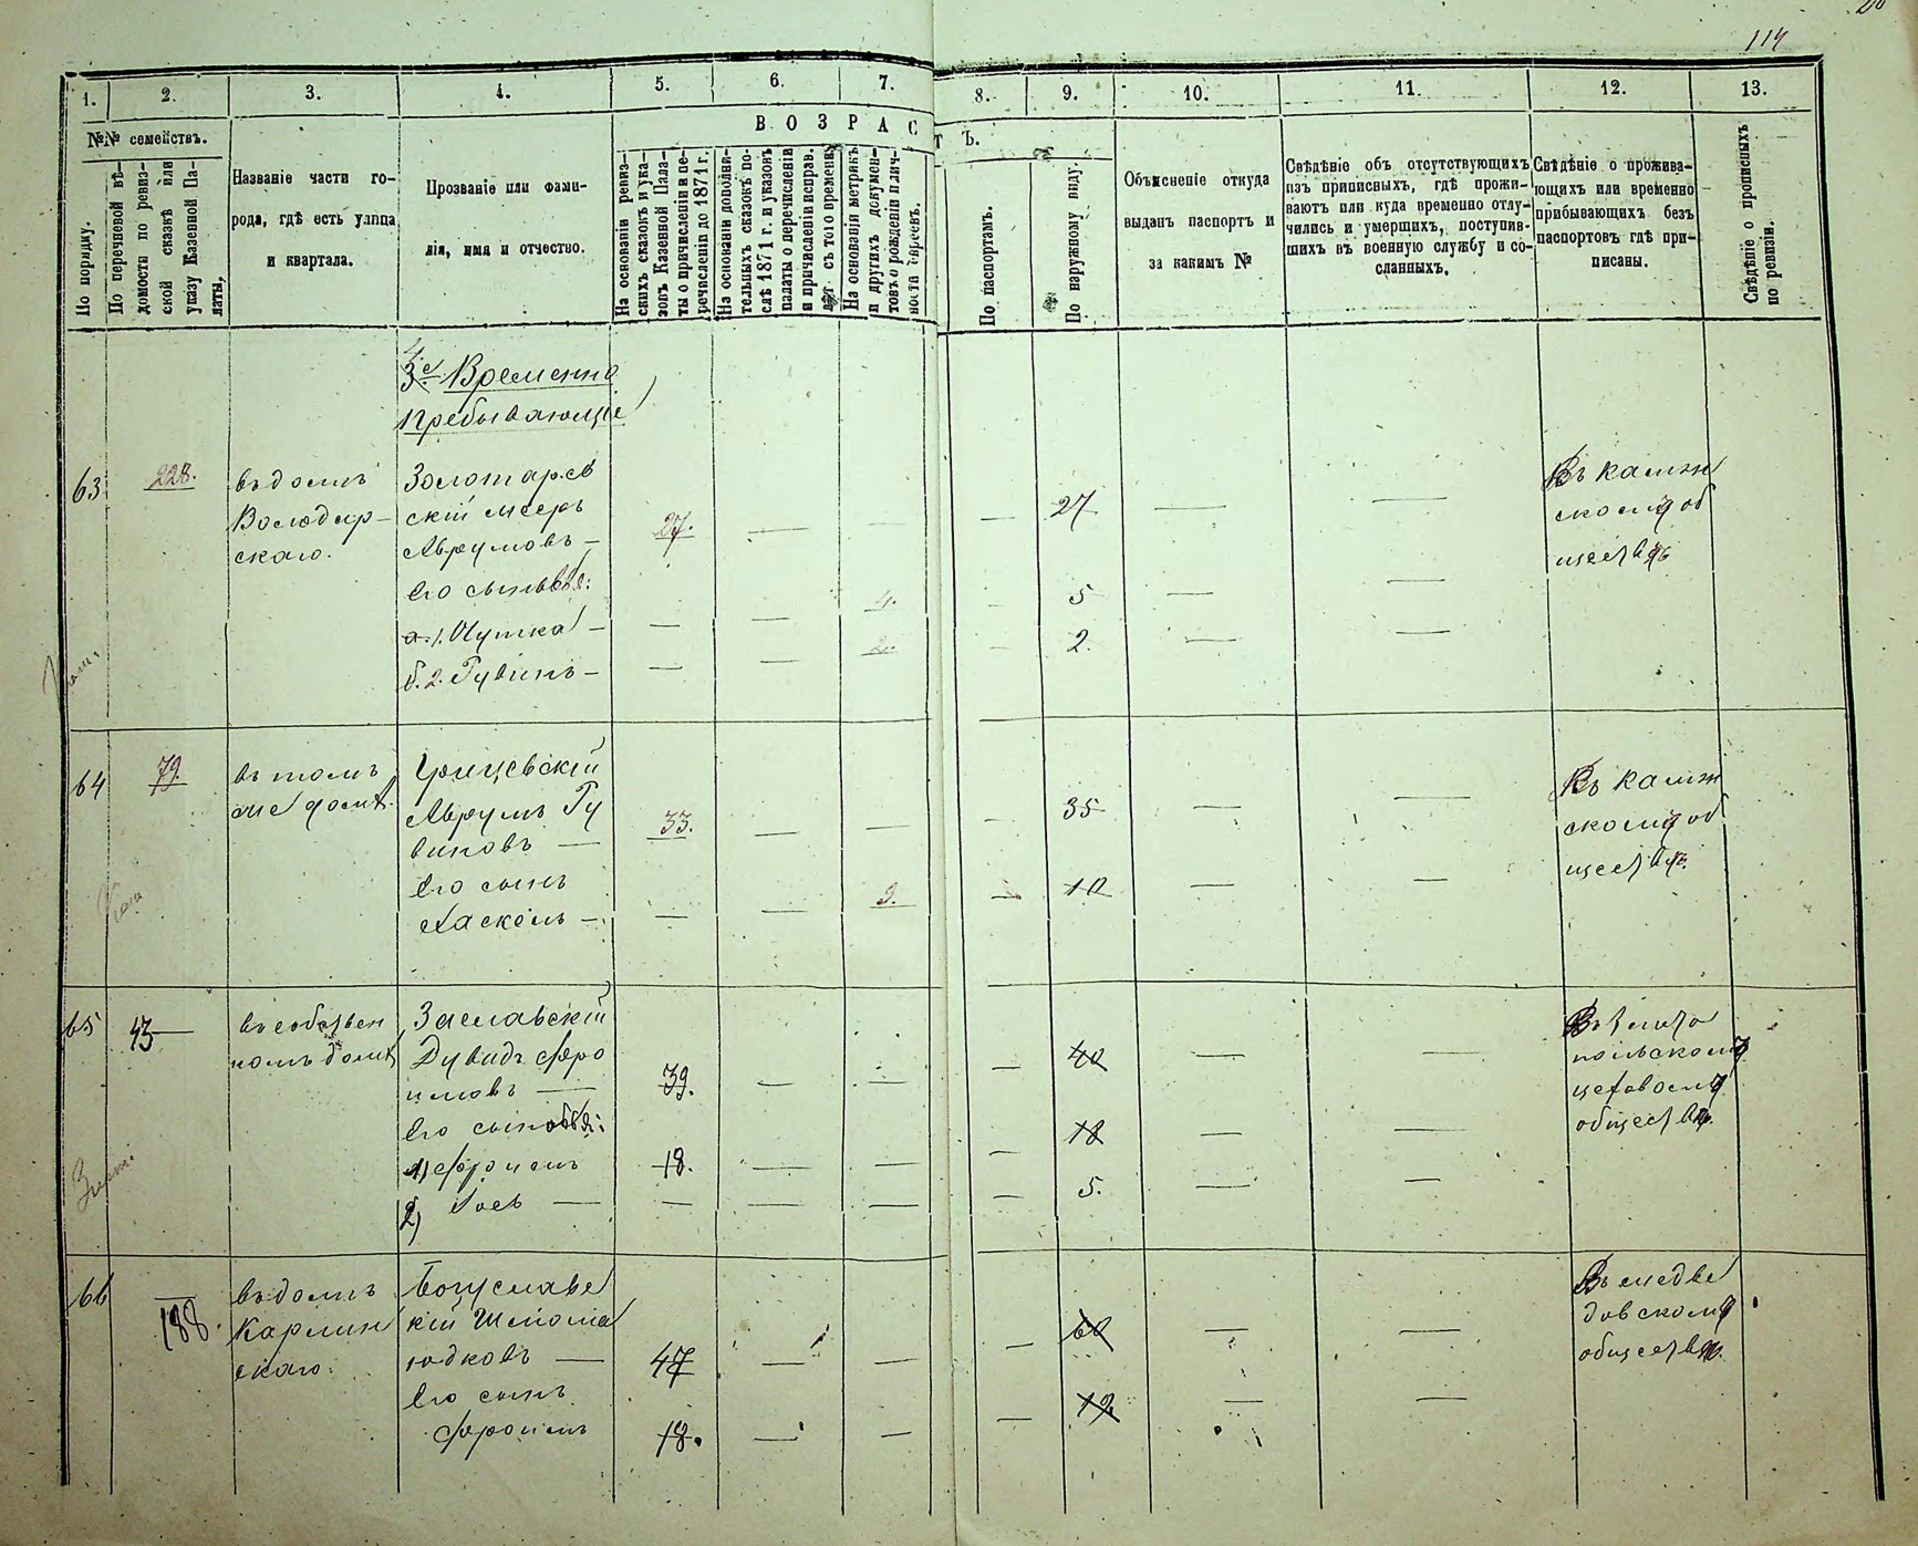 114
1. 2. 3. 4. 5. 6. 7. 8. 9. 10. 11. 12. 13.
№№ семействъ.
По порядку.
По перечневой вѣ-
домости по ревиз-
ской сказкѣ или
указу Казенной Па-
латы,
Названіе части го-
рода, гдѣ есть улица
и квартала.
Прозваніе или фами-
лія, имя и отчество.
ВОЗРАСТЪ.
На основаніи ревиз-
скихъ сказокъ и ука-
зовъ Казенной Пала-
ты о причисленіи и пе-
речисленіи до 1871 г.
На основаніи дополни-
тельныхъ сказокъ по-
слѣ 1871 г. и указовъ
палаты о перечисленіи
и причисленіи исправ.
лѣт съ того времени.
На основаніи метрикъ
и другихъ докумен-
товъ о рожденіи и лич-
ности евреевъ.
По паспортамъ.
По наружному виду.
Объясненіе откуда
выданъ паспортъ и
за какимъ №
Свѣдѣніе объ отсутствующихъ
изъ приписныхъ, гдѣ прожи-
ваютъ или куда временно отлу-
чились и умершихъ, поступив-
шихъ въ военную службу и со-
сланныхъ.
Свѣдѣніе о прожива-
ющихъ или временно
прибывающихъ безъ
паспортовъ гдѣ при-
писаны.
Свѣдѣніе о прописныхъ
по ревизіи.
Временно
Пребывающіе
63 228. въ домѣ Золотарев 27 Въ Калиж
Володар- скій Мееръ 27. скому об
скаго. Аврумовъ — ществу
его сыновья: 4. 5
а. 1. Шутка — 2. 2.
б. 2. Рувинъ —
64 79. въ томъ Грицевскій Въ Калиж
же домѣ. Аврумъ Ру 33. 35 скому об
виновъ — ществу.
Его сынъ 9. 10
Хаскель —
65 43 въ собствен Заславскій
номъ домѣ Дувидъ Фро 40 польскому
имовъ — 39. цеховому
Его сыновья: 18 обществу.
1) Фроимъ 18.
2) — 5.
66 188. въ домѣ Богуслав Въ Медве
Карлин кій Шлиома 60 довскому
скаго. юдковъ — 47 обществу.
Его сынъ
Фроимъ 18.